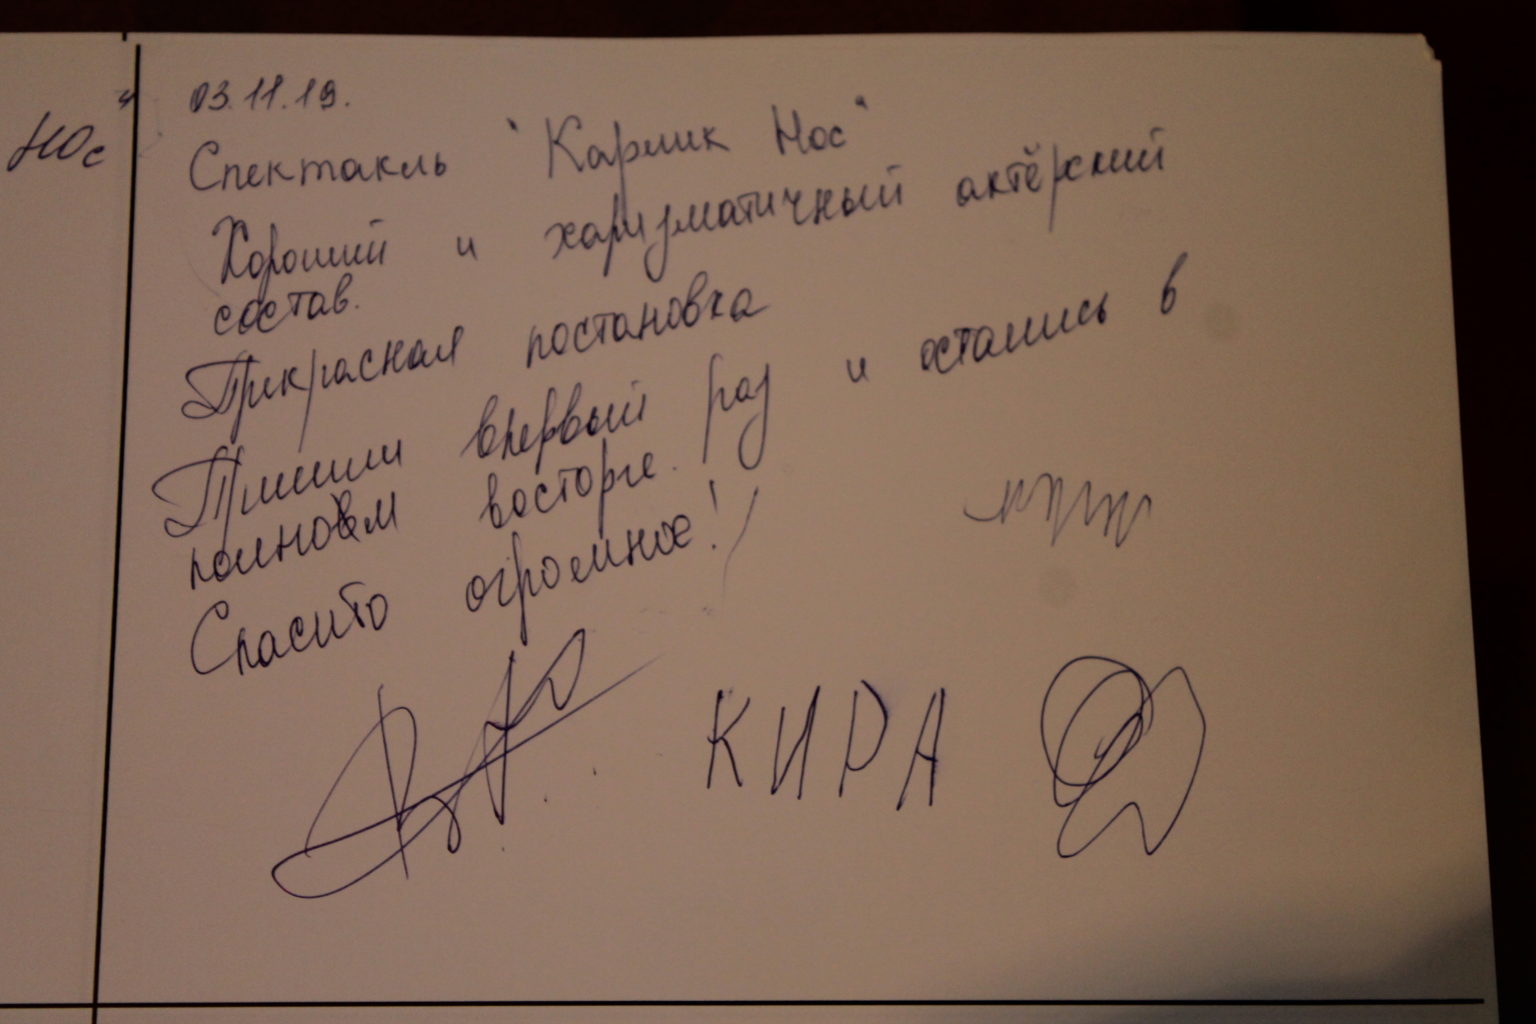 Нос"
03.11.19.
Спектакль "Карлик Нос"
Хороший и харизматичный актёрский
состав.
Прекрасная постановка
Пришли впервый раз и остались в
полном восторге.
Спасибо огромное!
КИРА